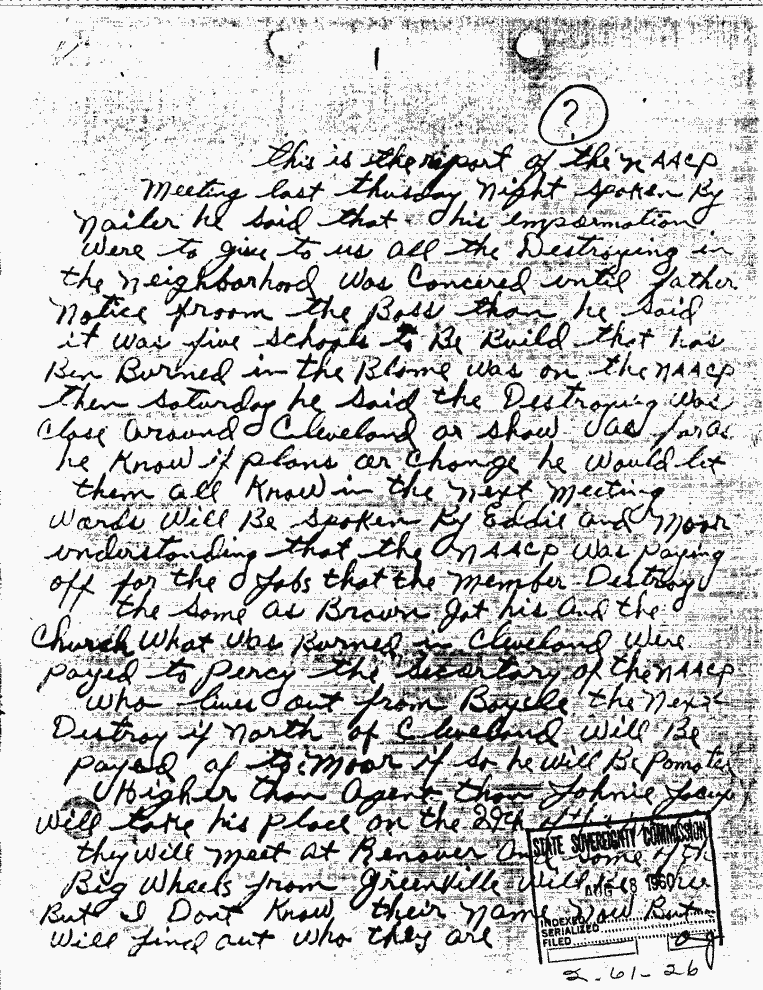 1
?
this is the riport of the NAACP
Meeting last thusday Night spoken By
Nailer he said that his imformation
were to give to us all the Destroying in
the Neighborhood was Concired until father
Notice froom the Boss than he said
it was five schools to Be Build that has
Ben Burned in the Blame was on the NAACP
then saturday he said the Destroying was
Close around Cleveland or show as far as
he Know if plans or change he would let
them all Know in the next Meeting
words Will Be spoken By Eddie and Moor
understanding that the NAACP was paying
off for the Jobs that the Member Destroy
the same as Brown got his and the
Church What was Burned in Cleveland were
payed to Percy the Secertary of the NAACP
who lives out from Boycle the Next
Destroy if North of Cleveland Will Be
payed of to Moor if so he will Be Pomoted
Higher than Agent than Johnie
Will take his place on the 29th of this
they will meet at Renover and some of the
Big Wheels from Greenville Will
But I Dont Know their Name Now But
Will find out who they are
STATE SOVEREIGNTY COMMISSION
AUG 8 1960
INDEXED
SERIALIZED
FILED
2-61-26